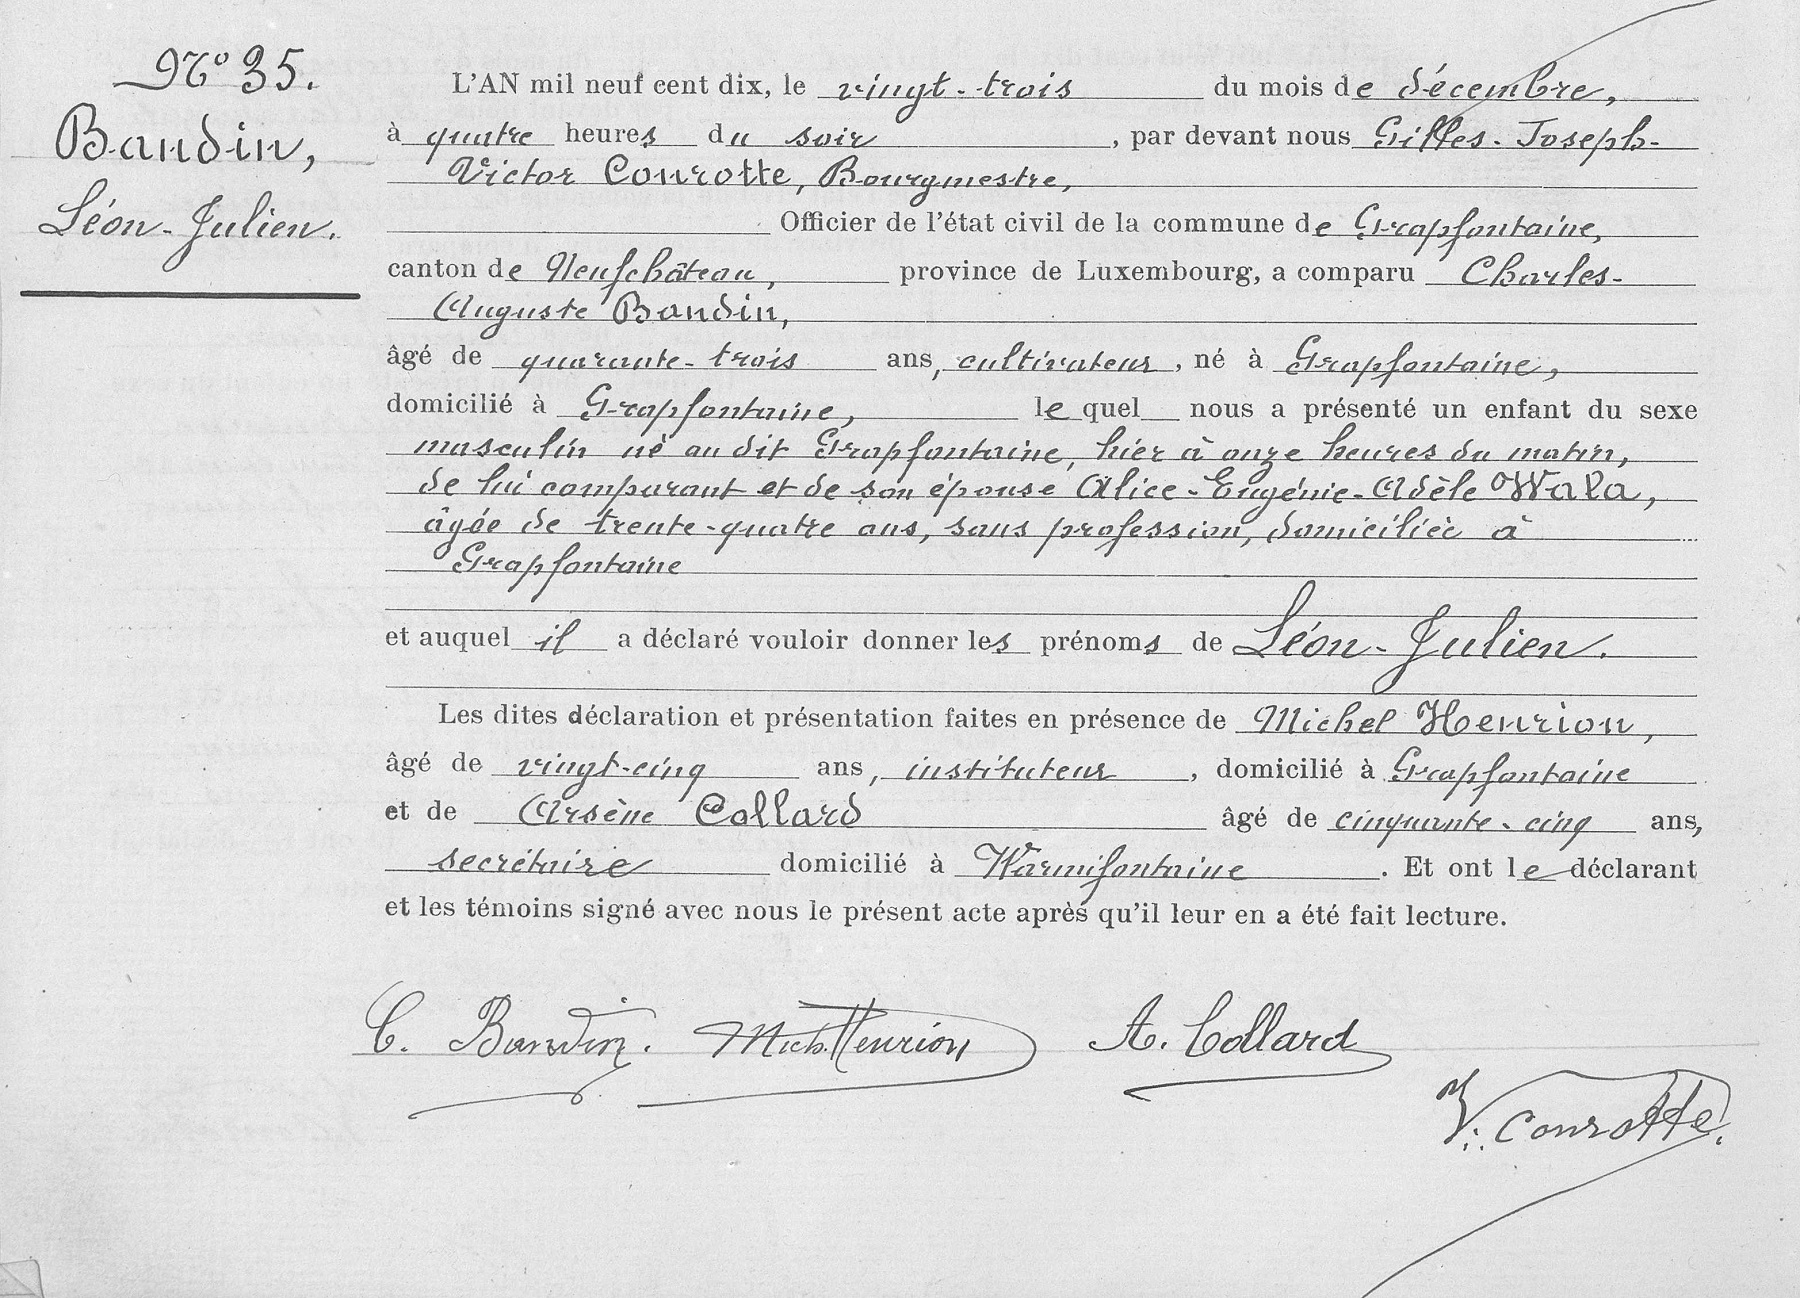 N° 35.
Baudin,
Léon-Julien.
L'AN mil neuf cent dix, le vingt-trois du mois de décembre,
à quatre heures du soir, par devant nous Gilles-Joseph-
Victor Courotte, Bourgmestre,
Officier de l'état civil de la commune de Grapfontaine,
canton de Neufchâteau, province de Luxembourg, a comparu Charles-
Auguste Baudin,
âgé de quarante-trois ans, cultivateur, né à Grapfontaine,
domicilié à Grapfontaine, lequel nous a présenté un enfant du sexe
masculin né au dit Grapfontaine, hier à onze heures du matin,
de lui comparant et de son épouse Alice-Eugénie-Adèle Wala,
âgée de trente-quatre ans, sans profession, domiciliée à
Grapfontaine
et auquel il a déclaré vouloir donner les prénoms de Léon-Julien.
Les dites déclaration et présentation faites en présence de Michel Henrion,
âgé de vingt-cinq ans, instituteur, domicilié à Grapfontaine
et de Arsène Collard âgé de cinquante-cinq ans,
secrétaire domicilié à Warmifontaine. Et ont le déclarant
et les témoins signé avec nous le présent acte après qu'il leur en a été fait lecture.
C. Baudin. Mich. Henrion A. Collard
V. Courotte.